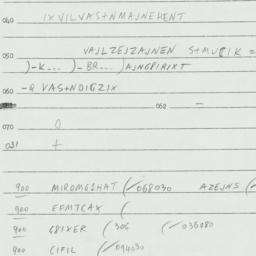 040 IXVILVAS+NMAJNEHENT
050 VAJLZEJZAJNEN S+MUZIK =
)-K... )-BR...)AJNGFIRIXT
060 -Q VAS+NDIGZIX
062 —
070 0
081 +
900 MIROMGIHAT (✓068030 AZEJNS (
900 EFMTCAX (
900 GBIXER (306 (✓036080
900 CIFIL (✓094030